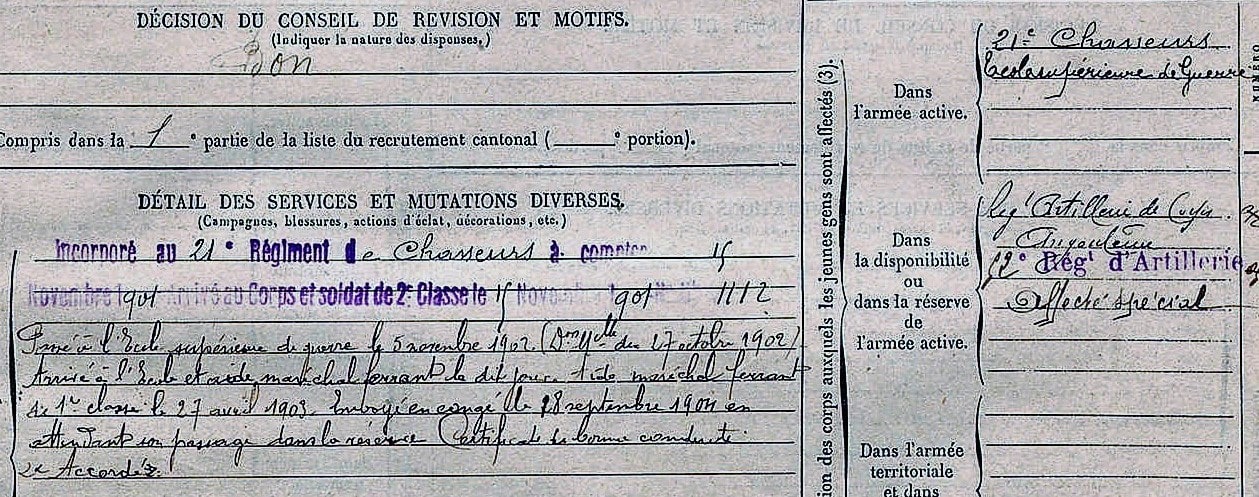 DÉCISION DU CONSEIL DE REVISION ET MOTIFS.
(Indiquer la nature des dispenses.)
Bon
Compris dans la 1 e partie de la liste du recrutement cantonal ( e portion).
DÉTAIL DES SERVICES ET MUTATIONS DIVERSES.
(Campagnes, blessures, actions d'éclat, décorations, etc.)
Incorporé au 21 e Régiment de Chasseurs à compter 15
Novembre 1901 Arrivé au Corps et soldat de 2e Classe le 15 Novembre 1901 1112
Passé à l'Ecole supérieure de guerre le 5 novembre 1902 (Don Mlle du 27 octobre 1902)
Arrivé à l'Ecole et aide maréchal ferrant le dit jour. Aide maréchal ferrant
de 1re classe le 27 avril 1903. Envoyé en congé le 28 septembre 1904 en
attendant son passage dans la réserve Certificat de bonne conduite
Accordé.
ion des corps auxquels les jeunes gens sont affectés (3).
Dans
l'armée active.
21e Chasseurs
Ecole supérieure de Guerre
Dans
la disponibilité
ou
dans la réserve
de
l'armée active.
Regt Artillerie de Corps
12e Régt d'Artillerie
Affecté spécial
Dans l'armée
territoriale
et dans
NUMÉRO